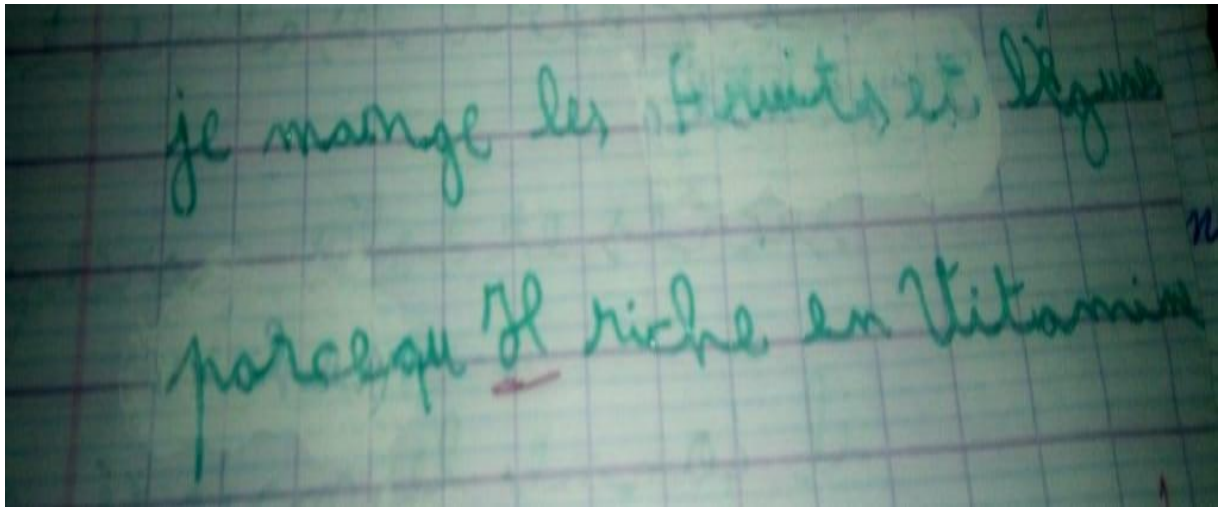 je mange les fruits et légume
parcequ Il riche en Vitamine